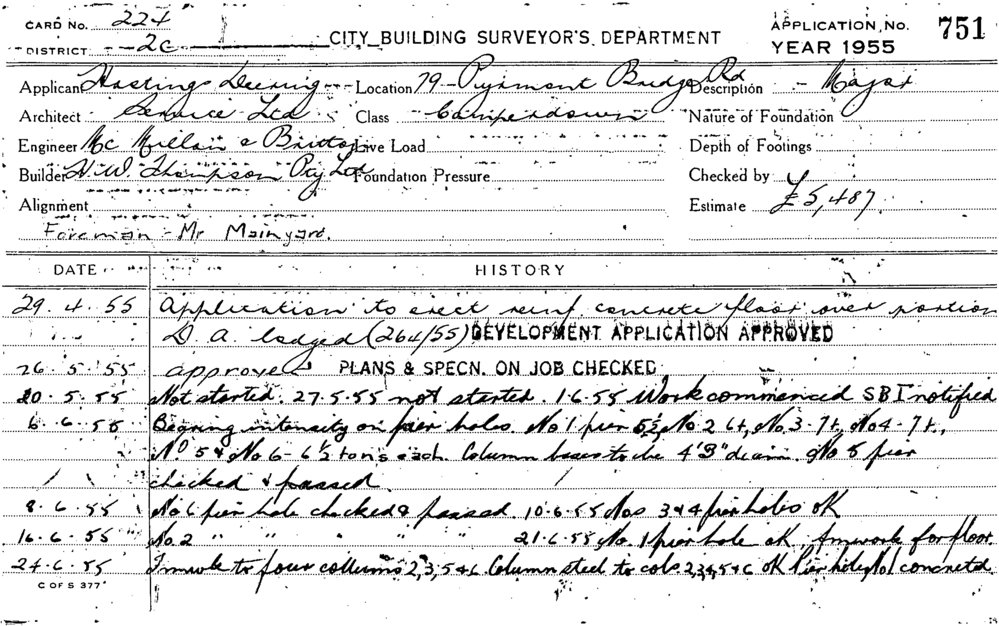 CARD No. 224
DISTRICT 2c
CITY BUILDING SURVEYOR'S DEPARTMENT
APPLICATION, No. 751
YEAR 1955
Applicant Hastings Deering Location 79 Pyrmont Bridge Rd Description - Major
Architect Service Ltd Class Camperdown Nature of Foundation
Engineer Mc Millan & Britton Live Load Depth of Footings
Builder H.W. Thompson Pty Ltd Foundation Pressure Checked by
Alignment Estimate £5,487.
Foreman - Mr Mainyard.
DATE HISTORY
29.4.55 Application to erect reinf concrete floor over portion
D.A. lodged (264/55) DEVELOPMENT APPLICATION APPROVED
26.5.55 approved PLANS & SPECN. ON JOB CHECKED
20.5.55 Not started. 27.5.55 not started. 1.6.55 Work commenced SBI notified
6.6.55 Bearing intensity on pier holes. No 1 pier 5½, No 2 6t, No 3-7t, No 4-7t,
No 5 & No 6-6½ tons each. Column bases to be 4'3" diam. No 5 pier
checked & passed.
8.6.55 No 6 pier hole checked & passed. 10.6.55 Nos 3&4 pier holes OK
16.6.55 No. 2 " " " " " 21.6.55 No. 1 pier hole ok. Fmwork for floor
24.6.55 Fmwk to four collums 2,3,5&6 Column steel to cols 2,3,4,5&6 OK Pier hole No1 concreted.
C OF S 377